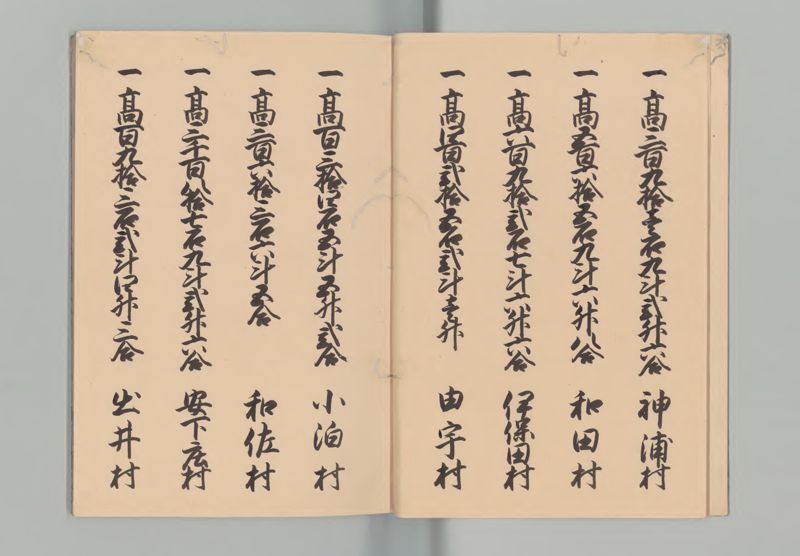 一高三百九拾壱石九斗弐升六合 神浦村
一高五百六拾五石九斗六升八合 和田村
一高六百九拾弐石七斗六升六合 伊保田村
一高四百弐拾五石弐斗壱升 由宇村
一高百三拾四石五斗五升弐合 小泊村
一高三百六拾三石六斗五合 和佐村
一高二千百八拾七石九斗弐升六合 安下庄村
一高百九拾三石弐斗四升三合 出井村